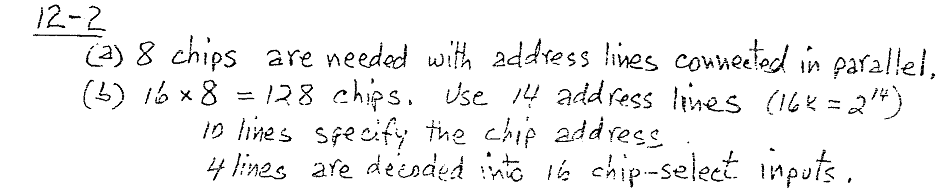 12-2
(a) 8 chips are needed with address lines connected in parallel.
(b) 16 × 8 = 128 chips. Use 14 address lines (16K = 2¹⁴)
10 lines specify the chip address
4 lines are decoded into 16 chip-select inputs.